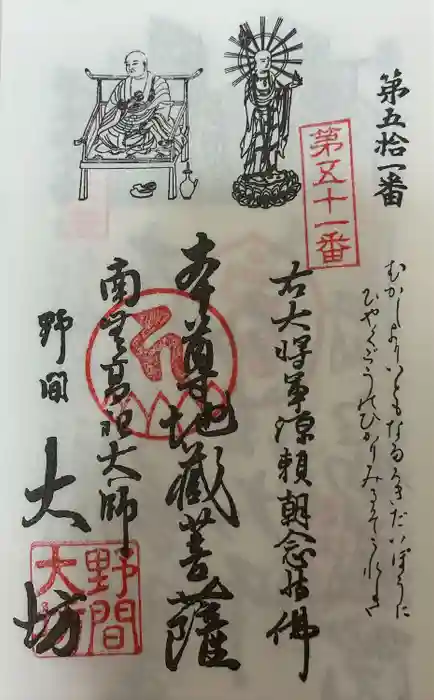 第五拾一番
第五十一番
むかしよりいともたつときだいぼうに
ひやくごうのひかりみるぞうれしき
右大将軍源頼朝念持佛
本尊地蔵菩薩
南無高祖大師
野間 大坊
野間
大坊